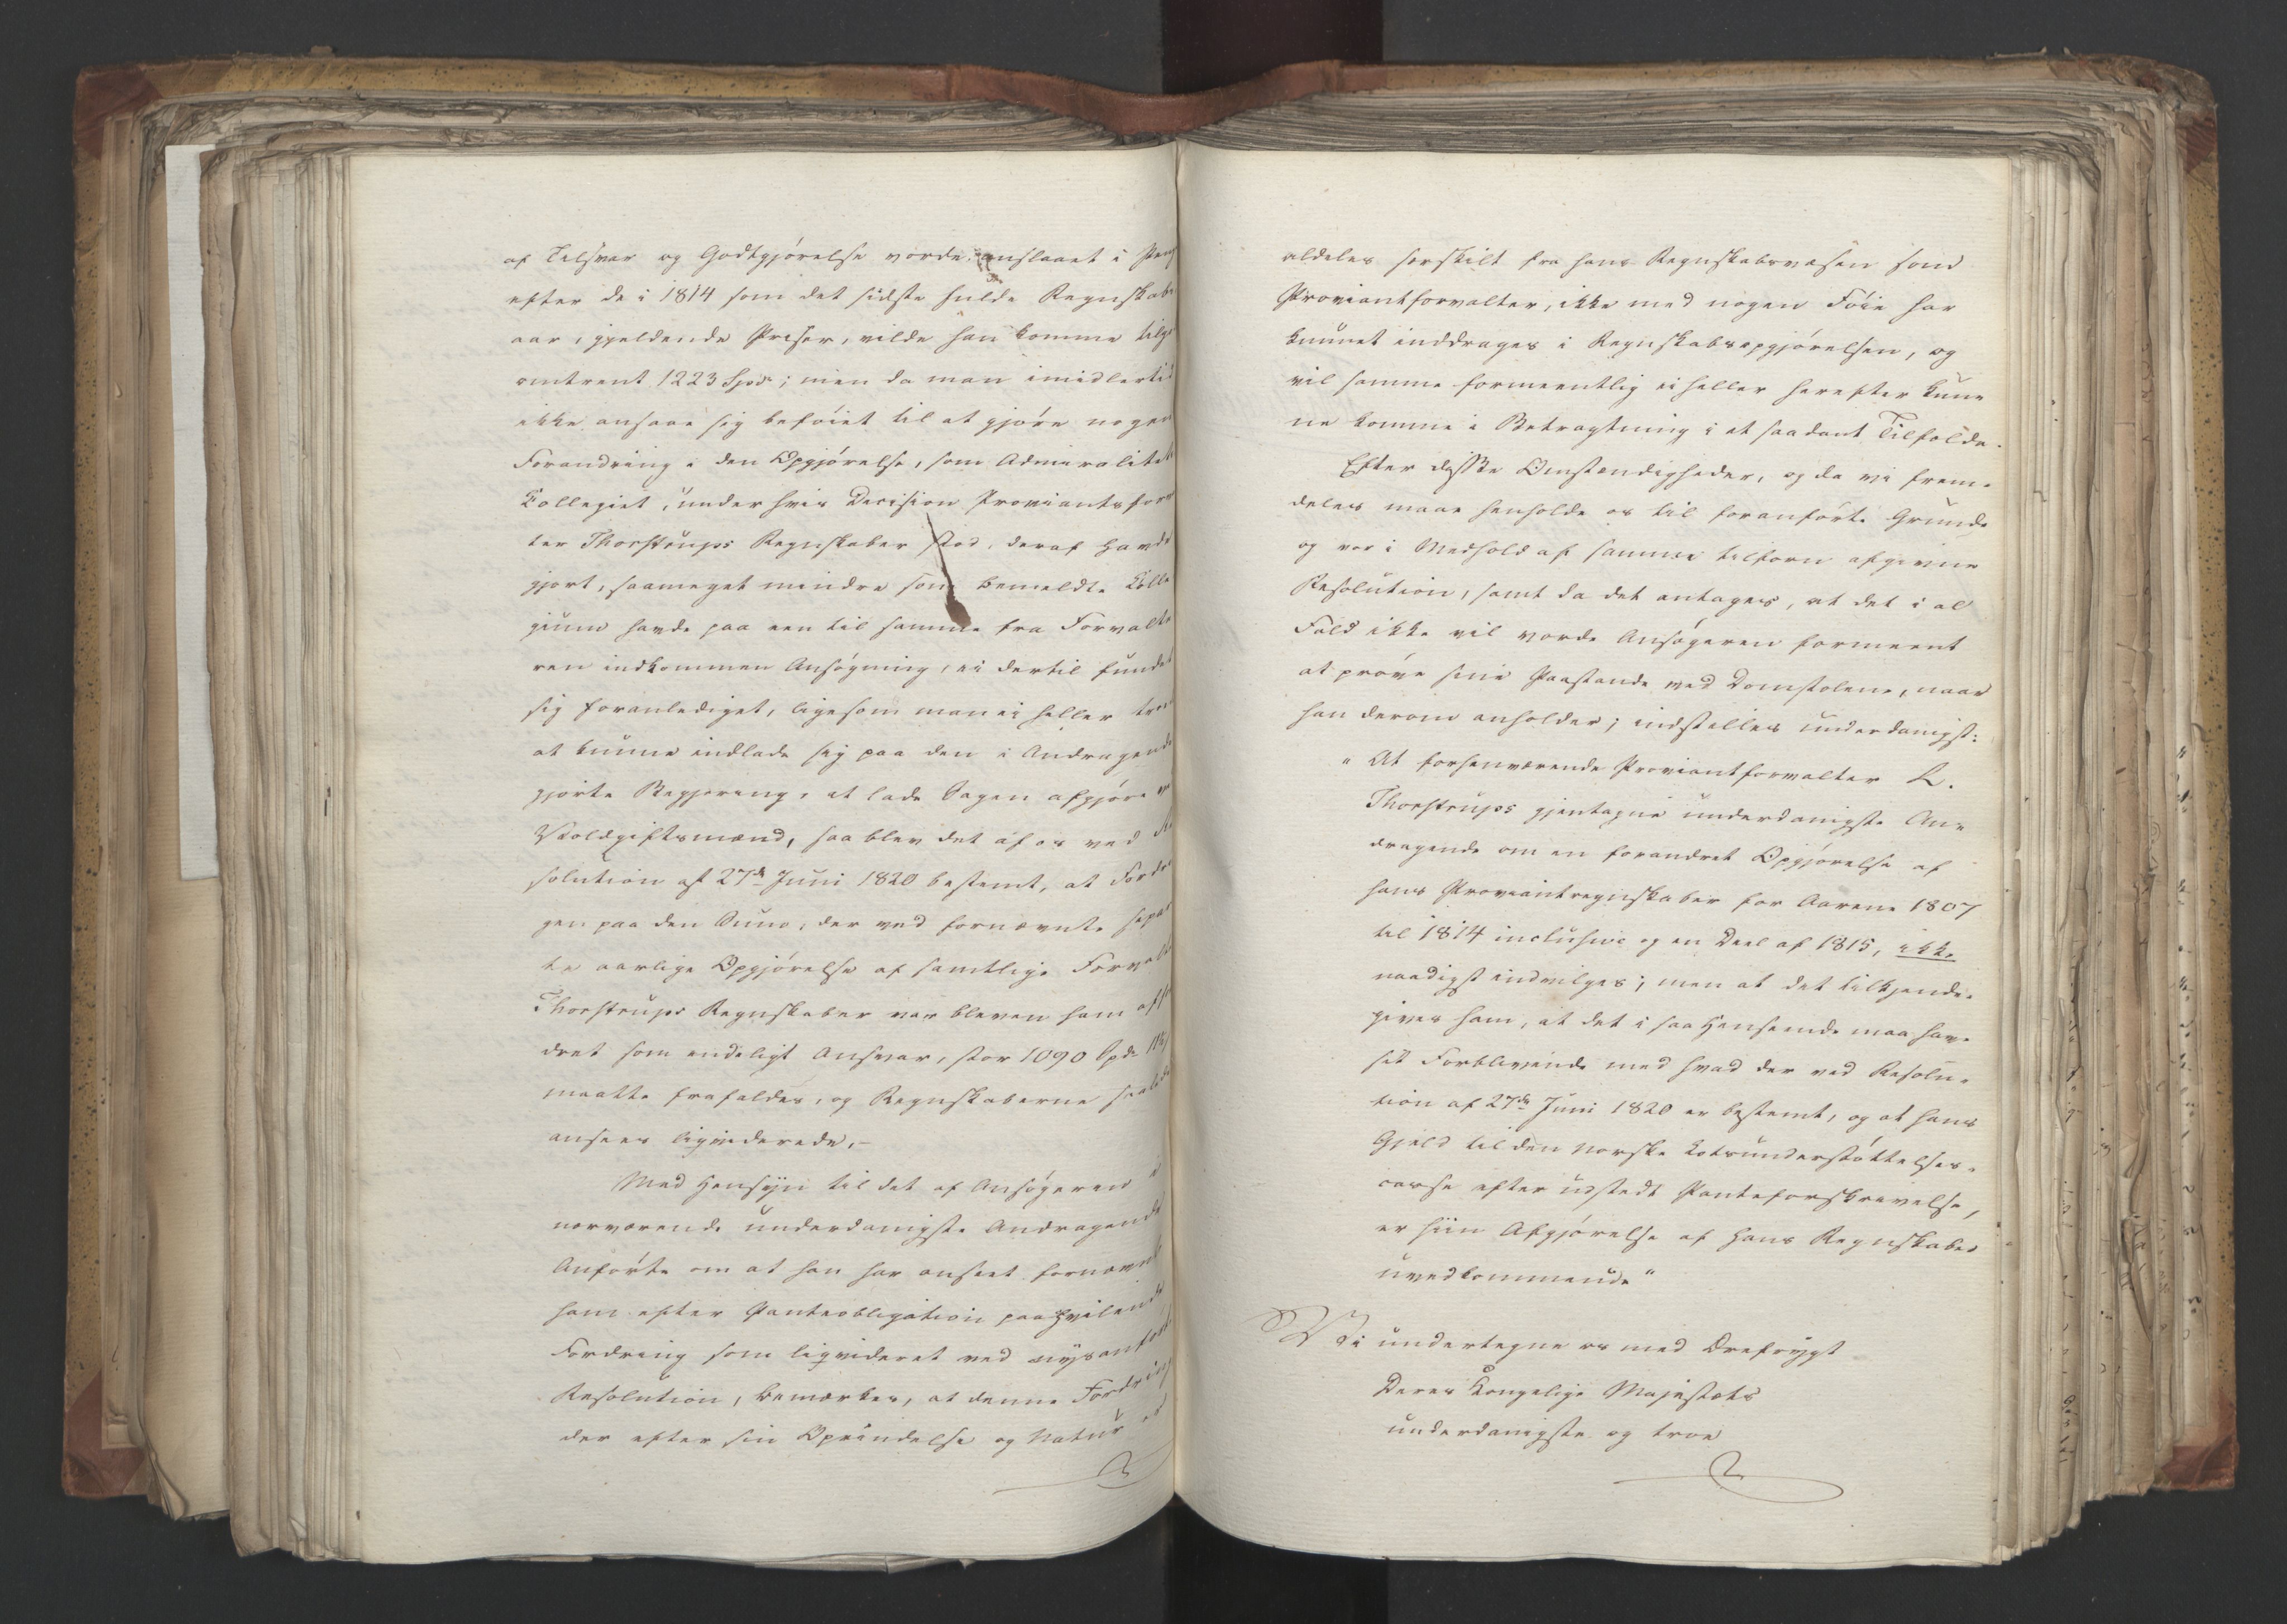 af Tilsvar og Godtgjörelse vorde anslaaet i
efter de i 1814 som det sidste fulde Regnskabs
aar, gjeldende Priser, vilde han komme
omtrent 1223 Spd; men da man imidlertid
ikke ansaae sig beföiet til at gjöre nogen
Forandring i den Opgjörelse, som Admiralitets
Collegiet, under hvis Decision Proviantsfor
ter Thorstrups Regnskaber stod, deraf havde
gjort, saameget mindre som bemeldte Colle
gium havde paa een til samme fra Forvalte
ren indkommen Ansögning, ei dertil fundet
sig foranlediget, ligesom man ei heller
at kunne indlade sig paa den i Andragende
gjorte Begjæring, at lade Sagen afgjöre
Voldgiftsmænd, saa blev det af os ved Re
solution af 27de Juni 1820 bestemt, at Fordrin
gen paa den Sum, der ved fornævnte
te aarlige Opgjörelse af samtlige Forvalter
Thorstrups Regnskaber var bleven ham
dret som endeligt Ansvar, stor 1090 Spd
maatte frafaldes, og Regnskaberne saaledes
ansees liqviderede.-
Med Hensyn til det af Ansögeren i
nærværende underdanigste Andragende
Anförte om at han har anseet fornævnte
ham efter Panteobligation paahvilende
Fordring som liqvideret ved nysanförte
Resolution, bemærkes, at denne Fordring
der efter sin Oprindelse og Natur er
aldeles forskilt fra hans Regnskabsvæsen som
Proviantforvalter, ikke med nogen Föie har
kunnet inddrages i Regnskabsopgjörelsen, og
vil samme formeentlig ei heller herefter kun-
ne komme i Betragtning i et saadant Tilfælde.
Efter disse Omstændigheder, og da vi frem-
deles maae henholde os til foranförte Grunde
og vor i Medhold af samme tilforn afgivne
Resolution, samt da det antages, at det i al
Fald ikke vil vorde Ansögeren formeent
at pröve sine Paastande ved Domstolene, naar
han derom anholder; indstilles underdanigst:
" At forhenværende Proviantforvalter L.
Thorstrups gjentagne underdanigste An-
dragende om en forandret Opgjörelse af
hans Proviantregnskaber for Aarene 1807
til 1814 inclusive og en Deel af 1815, ikke
naadigst indvilges; men at det tilkjende-
gives ham, at det i saa Henseende maa have
sit Forblivende med hvad der ved Resolu-
tion af 27de Juni 1820 er bestemt, og at hans
Gjeld til den norske Lotsunderstöttelses-
casse efter udstedt Panteforskrivelse,
er hiin Afgjörelse af hans Regnskaber
uvedkommende"
Vi undertegne os med Ærefrygt
Deres Kongelige Majestæts
underdanigste og troe